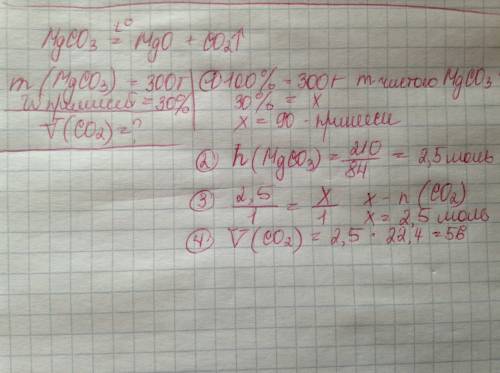 MgCO₃ =t°= MgO + CO₂↑
m (MgCO₃) = 300г
ω примесей = 30%
V(CO₂) = ?
① 100% = 300г m чистого MgCO₃
30% = x
x = 90 - примеси
② n (MgCO₃) = 210/84 = 2,5 моль
③ 2,5/1 = x/1 x - n (CO₂)
x = 2,5 моль
④ V(CO₂) = 2,5 · 22,4 = 56